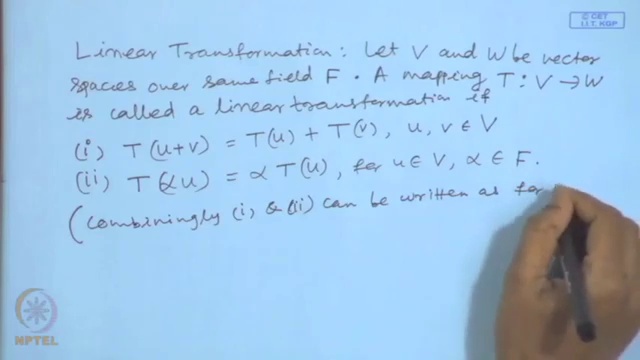 © CET
I.I.T. KGP
Linear Transformation: Let V and W be vector
spaces over same field F. A mapping T: V → W
is called a linear transformation if
(i) T(u+v) = T(u) + T(v), u, v ∈ V
(ii) T(αu) = α T(u), for u ∈ V, α ∈ F.
(Combiningly (i) & (ii) can be written as for
NPTEL